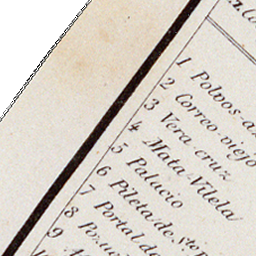 1 Polvos-
2 Correo viejo
3 Vera cruz
4 Mata Vilela
5 Palacio
6 Pileta de
7 Portal de
8
9